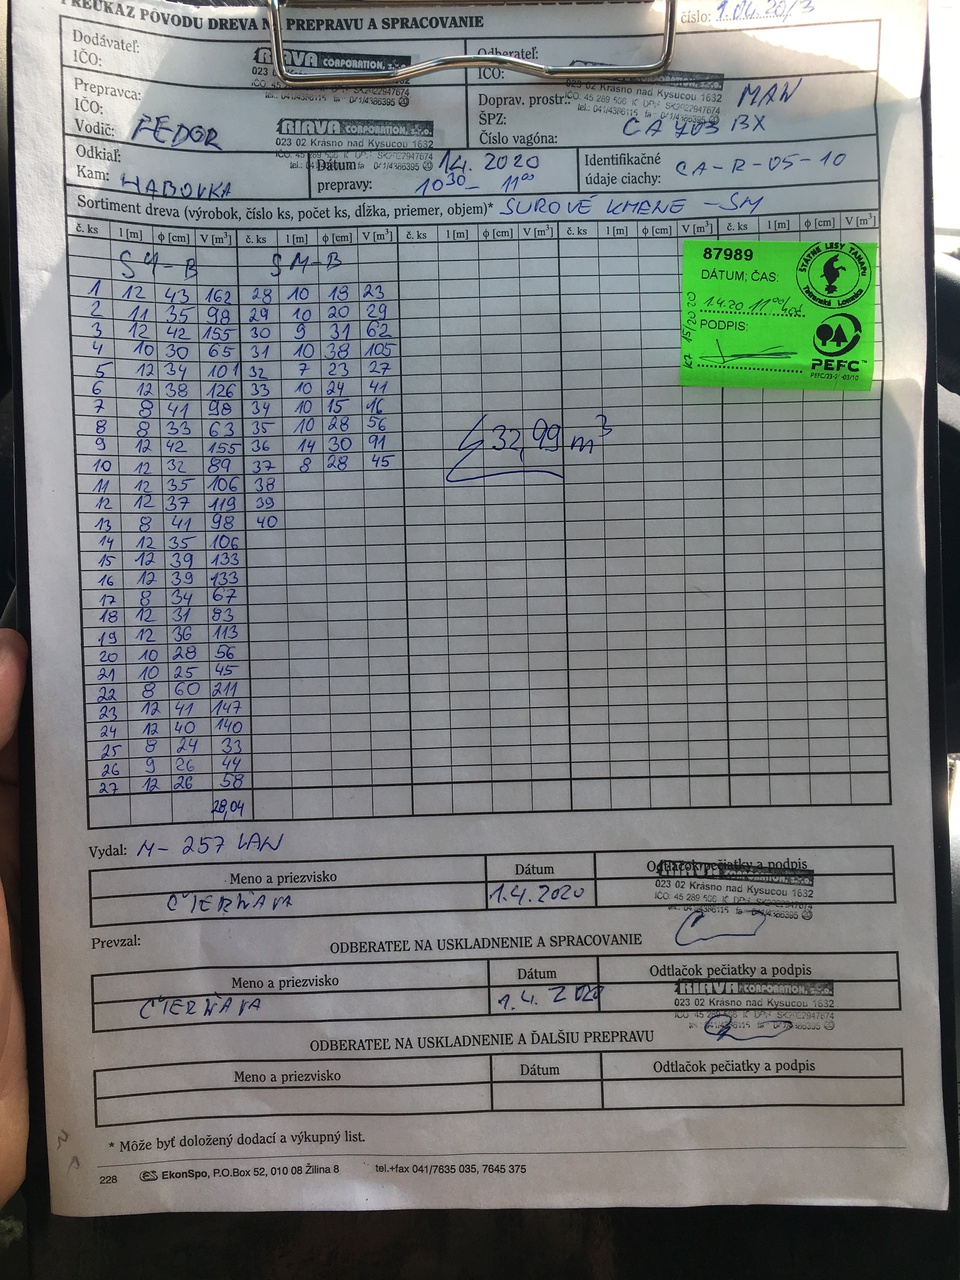 PREUKAZ PÔVODU DREVA NA PREPRAVU A SPRACOVANIE
číslo: 1.04.20/3
Dodávateľ:
IČO:
RIAVA CORPORATION, s.r.o.
Odberateľ:
IČO:
023 02 Krásno nad Kysucou 1632
IČO: 45 289 506 IČ DPH: SK2022947674
tel.: 041/4386115 fa : 041/4386395
Prepravca:
IČO:
Vodič: FEDOR
RIAVA CORPORATION, s.r.o.
023 02 Krásno nad Kysucou 1632
Doprav. prostr.: MAN
ŠPZ: CA 403 BX
Číslo vagóna:
Odkiaľ:
Kam: HABOVKA
Dátum prepravy: 1.4. 2020
10 30 - 11 00
Identifikačné údaje ciachy: CA-R-05-10
Sortiment dreva (výrobok, číslo ks, počet ks, dĺžka, priemer, objem)* SUROVÉ KMENE - SM
č. ks l [m] ϕ [cm] V [m³] č. ks l [m] ϕ [cm] V [m³] č. ks l [m] ϕ [cm] V [m³] č. ks l [m] ϕ [cm] V [m³] č. ks l [m] ϕ [cm] V [m³]
SM-B SM-B
1 12 43 162 28 10 18 23
2 11 35 98 29 10 20 29
3 12 42 155 30 9 31 62
4 10 30 65 31 10 38 105
5 12 34 101 32 7 23 27
6 12 38 126 33 10 24 41
7 8 41 98 34 10 15 16
8 8 33 63 35 10 28 56
9 12 42 155 36 14 30 91
10 12 32 89 37 8 28 45
11 12 35 106 38
12 12 37 119 39
13 8 41 98 40
14 12 35 106
15 12 39 133
16 12 39 133
17 8 34 67
18 12 31 83
19 12 36 113
20 10 28 56
21 10 25 45
22 8 60 211
23 12 41 147
24 12 40 140
25 8 24 33
26 9 26 44
27 12 26 58
28,04
32,99 m³
87989
DÁTUM; ČAS:
1.4.20 11 00
PODPIS:
ŠTÁTNE LESY TANAPU
Tatranská Lomnica
PEFC™
Vydal: M-257 LAN
Meno a priezvisko Dátum Odtlačok pečiatky a podpis
ČIERŇAVA 1.4.2020
023 02 Krásno nad Kysucou 1632
IČO: 45 289 506 IČ DPH: SK2022947674
Prevzal:
ODBERATEĽ NA USKLADNENIE A SPRACOVANIE
Meno a priezvisko Dátum Odtlačok pečiatky a podpis
ČIERŇAVA 1.4. 2020
RIAVA CORPORATION, s.r.o.
023 02 Krásno nad Kysucou 1632
ODBERATEĽ NA USKLADNENIE A ĎALŠIU PREPRAVU
Meno a priezvisko Dátum Odtlačok pečiatky a podpis
* Môže byť doložený dodací a výkupný list.
228 EkonSpo, P.O.Box 52, 010 08 Žilina 8 tel.+fax 041/7635 035, 7645 375